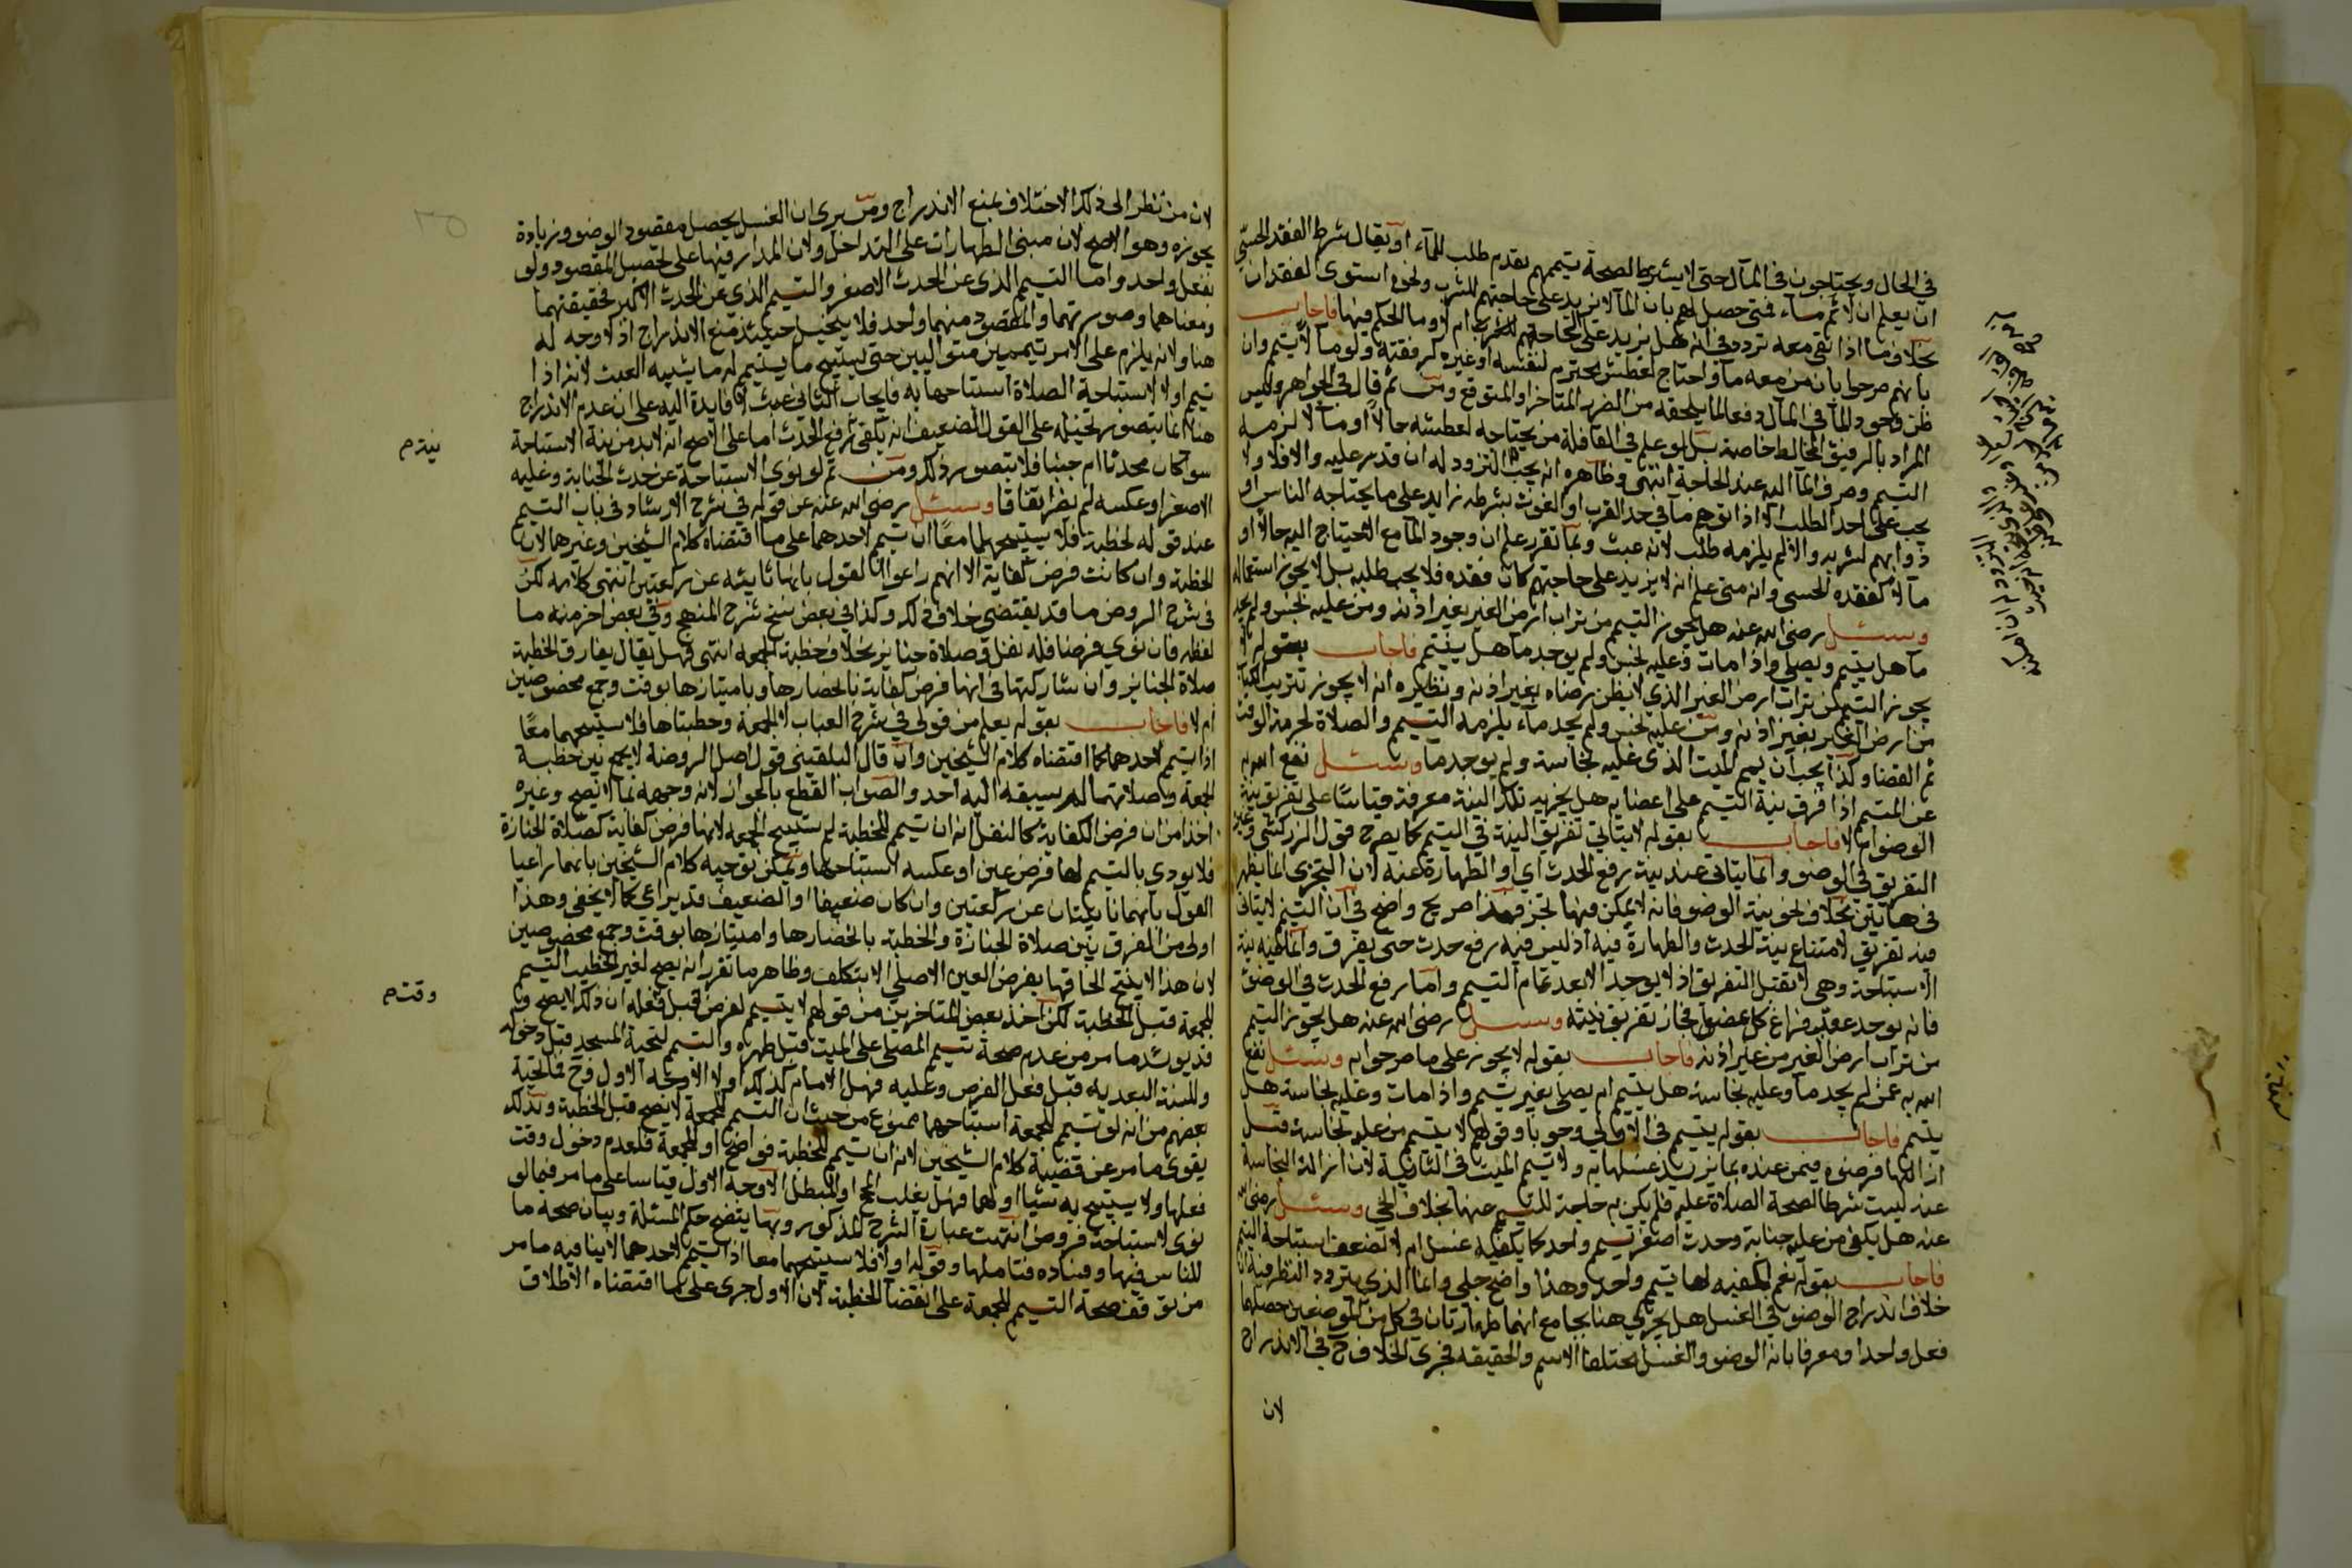 في الحال ويحتاجون في المآل حتى لا يشترط لصحة تيممهم تقدم طلب للمآء او يقال شرط الفقد الحسي
ان يعلم ان لا ثم مآء فمتى حصل لهم بان المآ لا يزيد على حاجتهم للشرب ونحوه استوى لفقدان
بخلاف ما اذا بقى معه تردد في انه هل يزيد على الحاجة للشرب ام لا وما الحكم فيها فاجاب
بانهم صرحوا بان من معه مآ واحتاج لعطش محترم لنفسه او غيره كرفقته ولو مآلا يتيمم وان
ظن وجود المآ في المآل دفعا لما يلحقه من الضرر المتاخر او المتوقع ومن ثم قال في الجواهر وليس
المراد بالرفيق المخالط خاصة بل لو علم في القافلة من يحتاجه لعطشه حالا او مآلا لزمه
التيمم وصرف المآ اليه عند الحاجة انتهى وظاهره انه يجب التزود له ان قدر عليه والا فلا ولا
يجب على احد الطلب الا اذا توهم مآ في حد القرب او الغوث بشرطه زايد على ما يحتاجه الناس او
دوابهم لشربه والا لم يلزمه طلب لانه عبث وبما تقرر علم ان وجود المآ مع الاحتياج اليه حالا او
مآلا كفقده الحسى وانه متى علم انه لا يزيد على حاجتهم كان كفقده فلا يجب طلبه بل لا يجوز استعماله
وسئل رضى الله عنه هل يجوز التيمم من تراب ارض الغير بغير اذنه ومن عليه نجس ولم يجد
مآ هل يتيمم ويصلى واذا مات وعليه نجس ولم يوجد مآ هل ييمم فاجاب بقوله لا
يجوز التيمم من تراب ارض الغير الذى لا يظن رضاه بغير اذنه ونظيره انه لا يجوز تتريب الكتاب
من ارض الغير بغير اذنه ومن عليه نجس ولم يجد مآء يلزمه التيمم والصلاة لحرمة الوقت
ثم القضا وكذا يجب ان ييمم الميت الذى عليه نجاسة ولم يوجد مآ وسئل نفع الله به
عن المتيمم اذا فرق نية التيمم على اعضايه هل يجزيه تلك النية مفرقة قياسا على تفريق نية
الوضوء ام لا فاجاب بقوله لا يتاتى تفريق النية في التيمم كما يصرح قول الزركشى وغيره
التفريق في الوضو وانما يتاتى عند نية رفع الحدث اى او الطهارة عنه لان التجزى انما يظهر
في هاتين بخلاف نحو نية الوضو فانه لا يمكن فيها تجز فهذا صريح واضح في ان التيمم لا يتاتى
فيه تفريق لامتناع نية الحدث والطهارة فيه اذ ليس فيه رفع حدث حتى يفرق وانما فيه نية
الاستباحة وهى لا تقبل التفريق اذ لا يوجد الا بعد تمام التيمم واما رفع الحدث في الوضو
فانه يوجد عقب فراغ كل عضو فجاز تفريق نيته وسئل رضى الله عنه هل يجوز التيمم
من تراب ارض الغير من غير اذنه فاجاب بقوله لا يجوز على ما صرحوا به وسئل نفع
الله به عمن لم يجد مآ وعليه نجاسة هل يتيمم ام يصلى بغير تيمم واذا مات وعليه نجاسة هل
ييمم فاجاب بقوله يتيمم في الاولى وجوبا وقولهم لا يتيمم من عليه نجاسة قبل
ازالتها فرضوه فيمن عنده ما يزيد غسلها به ولا ييمم الميت في الثانية لان ازالة النجاسة
عنه ليست شرطا لصحة الصلاة عليه فلم يكن به حاجة للتيمم عنها بخلاف الحى وسئل رضى الله
عنه هل يكفى من عليه جنابة وحدث اصغر تيمم واحد كما يكفيه غسل ام لا لضعف استباحة التيمم
فاجاب بقوله نعم يكفيه لها تيمم واحد وهذا واضح جلى وانما الذى يتردد النظر فيه ان
خلاف اندراج الوضو في الغسل هل يجرى هنا بجامع انهما طهارتان في كل من الموضعين حصلها
فعل واحد او معرفا بان الوضو والغسل مختلفا الاسم والحقيقة فجرى الخلاف ح في الاندراج
لان
لان من نظر الى ذلك الاختلاف يمنع الاندراج ومن يرى ان الغسل يحصل مقصود الوضو وزيادة
يجوزه وهو الاصح لان مبنى الطهارات على التداخل ولان المدار فيها على تحصيل المقصود ولو
بفعل واحد واما التيمم الذى عن الحدث الاصغر والتيمم الذى عن الحدث الاكبر فحقيقتهما
ومعناهما وصورتهما والمقصود منهما واحد فلا يتخيل حينئذ منع الاندراج اذ لا وجه له
هنا ولانه يلزم على الامر بتيممين متواليين حتى يستبيح ما يتيمم له ما يشبه العبث لانه اذا
تيمم اولا لاستباحة الصلاة استباحها به فايجاب الثانى عبث لا فايدة اليه على ان عدم الاندراج
هنا انما يتصور تخيله على القول الضعيف انه يكفى رفع الحدث اما على الاصح انه لا بد من نية الاستباحة
سوآ كان محدثا ام جنبا فلا يتصور ذلك ومن ثم لو نوى الاستباحة عن حدث الجنابة وعليه
الاصغر او عكسه لم يضر اتفاقا وسئل رضى الله عنه عن قوله في شرح الارشاد في باب التيمم
عند قوله لخطبة فلا يستبيحهما معا ان تيمم لاحدهما على ما اقتضاه كلام الشيخين وغيرهما لان
الخطبة وان كانت فرض كفاية الا انهم راعوا القول بانها نائبة عن ركعتين انتهى كلامه لكن
في شرح الروض ما قد يقتضى خلاف ذلك وكذا في بعض نسخ شرح المنهج وفي بعض اخر منه ما
لفظه فان نوى فرضا فله نفل وصلاة جنايز بخلاف خطبة الجمعة انتهى فهل يقال يفارق الخطبة
صلاة الجنايز وان شاركتها في انها فرض كفاية بانحصارها وبامتيازها بوقت وجمع مخصوصين
ام لا فاجاب بقوله يعلم من قولى في شرح العباب لا الجمعة وخطبتاها فلا يستبيحهما معا
اذا تيمم لاحدهما كما اقتضاه كلام الشيخين وان قال البلقينى قول اصل الروضة لا يجمع بين خطبة
الجمعة وصلاتها لم يسبقه اليه احد والصواب القطع بالجواز لانه وجهه بما لا يصح وغيره
اخذا من ان فرض الكفاية كالنفل انه ان تيمم للخطبة لم يستبح الجمعة لانها فرض كفاية كصلاة الجنازة
فلا يودى بالتيمم لها فرض عين او عكسه استباحها ويمكن توجيه كلام الشيخين بانهما راعيا
القول بانهما نايبتان عن ركعتين وان كان ضعيفا اذ الضعيف قد يراعى كما لا يخفى وهذا
اولى من الفرق بين صلاة الجنازة والخطبة بانحصارها وامتيازها بوقت وجمع مخصوصين
لان هذا لا ينتج الحاقها بفرض العين الاصلى الا بتكلف وظاهر ما تقرر انه يصح لغير الخطيب التيمم
للجمعة قبل الخطبة لكن اخذ بعض المتاخرين من قولهم لا يتيمم لفرض قبل فعله ان ذلك لا يصح و
قد يويده ما مر من عدم صحة تيمم المصلى على الميت قبل طهره والتيمم لتحية المسجد قبل دخوله
والسنة البعدية قبل فعل الفرض وعليه فهل الامام كذلك او لا الاوجه الاول وبح
بعضهم من انه لو تيمم للجمعة استباحهما ممنوع من حيث ان التيمم للجمعة لا يصح قبل الخطبة وبذلك
يقوى ما مر عن قضية كلام الشيخين لانه ان تيمم للخطبة فواضح او للجمعة فلعدم دخول وقت
فعلها ولا يستبيح به شيئا او لهما فهل يغلب المبيح او المبطل الاوجه الاول قياسا على ما مر فيما لو
نوى لاستباحة فروض انتهت عبارة الشرح المذكور وبها يتضح حكم المسئلة وبيان صحة ما
للناس فيها وفساده فتاملها وقوله اولا فلا يستبيحهما معا اذا تيمم لاحدهما لا ينافيه ما مر
من توقف صحة التيمم للجمعة على انقضا الخطبة لان الاول جرى على ما اقتضاه الاطلاق
وقت م